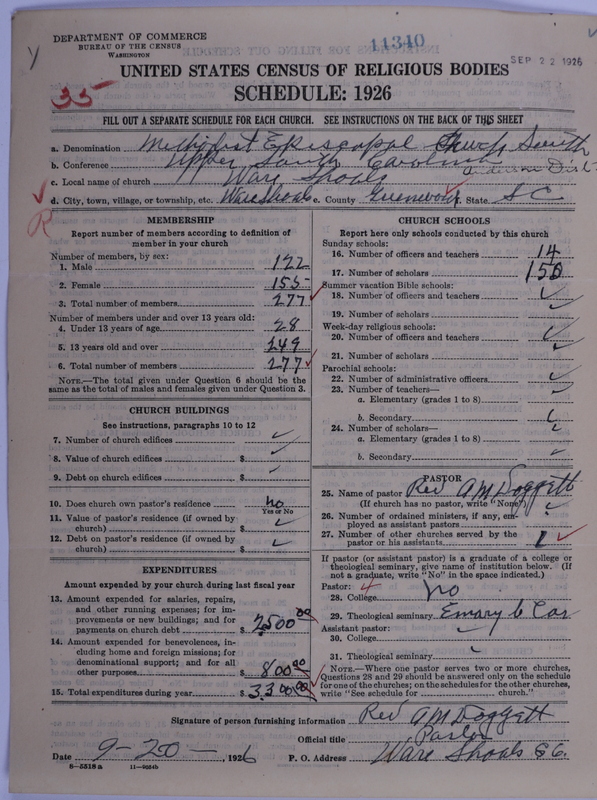 DEPARTMENT OF COMMERCE
BUREAU OF THE CENSUS
WASHINGTON
11340
SEP 22 1926
UNITED STATES CENSUS OF RELIGIOUS BODIES
SCHEDULE: 1926
35
FILL OUT A SEPARATE SCHEDULE FOR EACH CHURCH. SEE INSTRUCTIONS ON THE BACK OF THIS SHEET
a. Denomination Methodist Episcopal Church South
b. Conference Upper South Carolina Anderson Dist
c. Local name of church Ware Shoals
d. City, town, village, or township, etc. Ware Shoals e. County Greenwood f. State S C
MEMBERSHIP
Report number of members according to definition of member in your church
Number of members, by sex:
1. Male 122
2. Female 155
3. Total number of members 277
Number of members under and over 13 years old:
4. Under 13 years of age 28
5. 13 years old and over 249
6. Total number of members 277
NOTE.—The total given under Question 6 should be
same as the total of males and females given under Question 3.
CHURCH BUILDINGS
See instructions, paragraphs 10 to 12
7. Number of church edifices
8. Value of church edifices $
9. Debt on church edifices $
10. Does church own pastor's residence No
Yes or No
11. Value of pastor's residence (if owned by
church) $
12. Debt on pastor's residence (if owned by
church) $
EXPENDITURES
Amount expended by your church during last fiscal year
13. Amount expended for salaries, repairs,
and other running expenses; for im-
provements or new buildings; and for
payments on church debt $ 2500.00
14. Amount expended for benevolences, in-
cluding home and foreign missions; for
denominational support; and for all
other purposes $ 800.00
15. Total expenditures during year $ 3300.00
CHURCH SCHOOLS
Report here only schools conducted by this church
Sunday schools:
16. Number of officers and teachers 14
17. Number of scholars 150
Summer vacation Bible schools:
18. Number of officers and teachers
19. Number of scholars
Week-day religious schools:
20. Number of officers and teachers
21. Number of scholars
Parochial schools:
22. Number of administrative officers
23. Number of teachers—
a. Elementary (grades 1 to 8)
b. Secondary
24. Number of scholars—
a. Elementary (grades 1 to 8)
b. Secondary
PASTOR
25. Name of pastor Rev A M Doggett
(If church has no pastor, write "None")
26. Number of ordained ministers, if any, em-
ployed as assistant pastors
27. Number of other churches served by the
pastor or his assistants 1
If pastor (or assistant pastor) is a graduate of a college or
theological seminary, give name of institution below. (If
not a graduate, write "No" in the space indicated.)
Pastor: 4
28. College No
29. Theological seminary
Assistant pastor:
30. College
31. Theological seminary
NOTE.—Where one pastor serves two or more churches,
Questions 28 and 29 should be answered only on the schedule
for one of the churches; on the schedules for the other churches,
write "See schedule for church."
Signature of person furnishing information Rev A M Doggett
Official title Pastor
Date 9-20-, 1926 P. O. Address Ware Shoals
8—5318 a 11—9264b